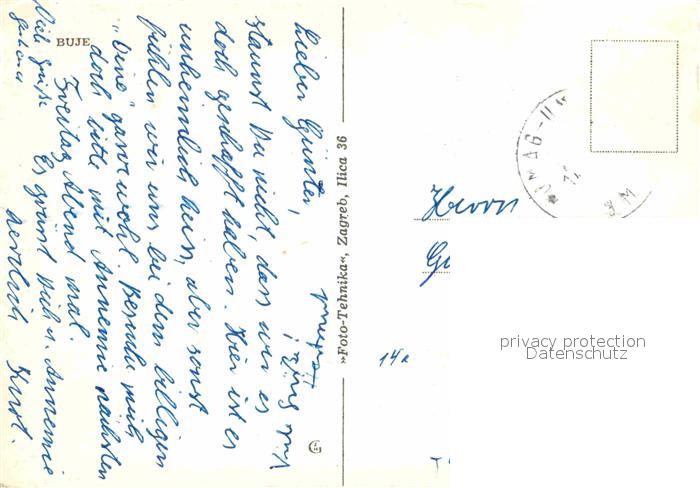 BUJE
Lieber Günter,
staunst Du nicht, dass wir es
doch geschafft haben. Hier ist es
unheimlich heiss, aber sonst
fühlen wir uns bei dem billigen
"Vino" ganz wohl. Besuche mich
doch bitte mit Annemie nächsten
Freitag Abend mal.
Es grüsst Dich u. Annemie
herzlich Horst.
Viele Grüße
»Foto-Tehnika«, Zagreb, Ilica 36
UMAG
Herrn
14a
privacy protection
Datenschutz